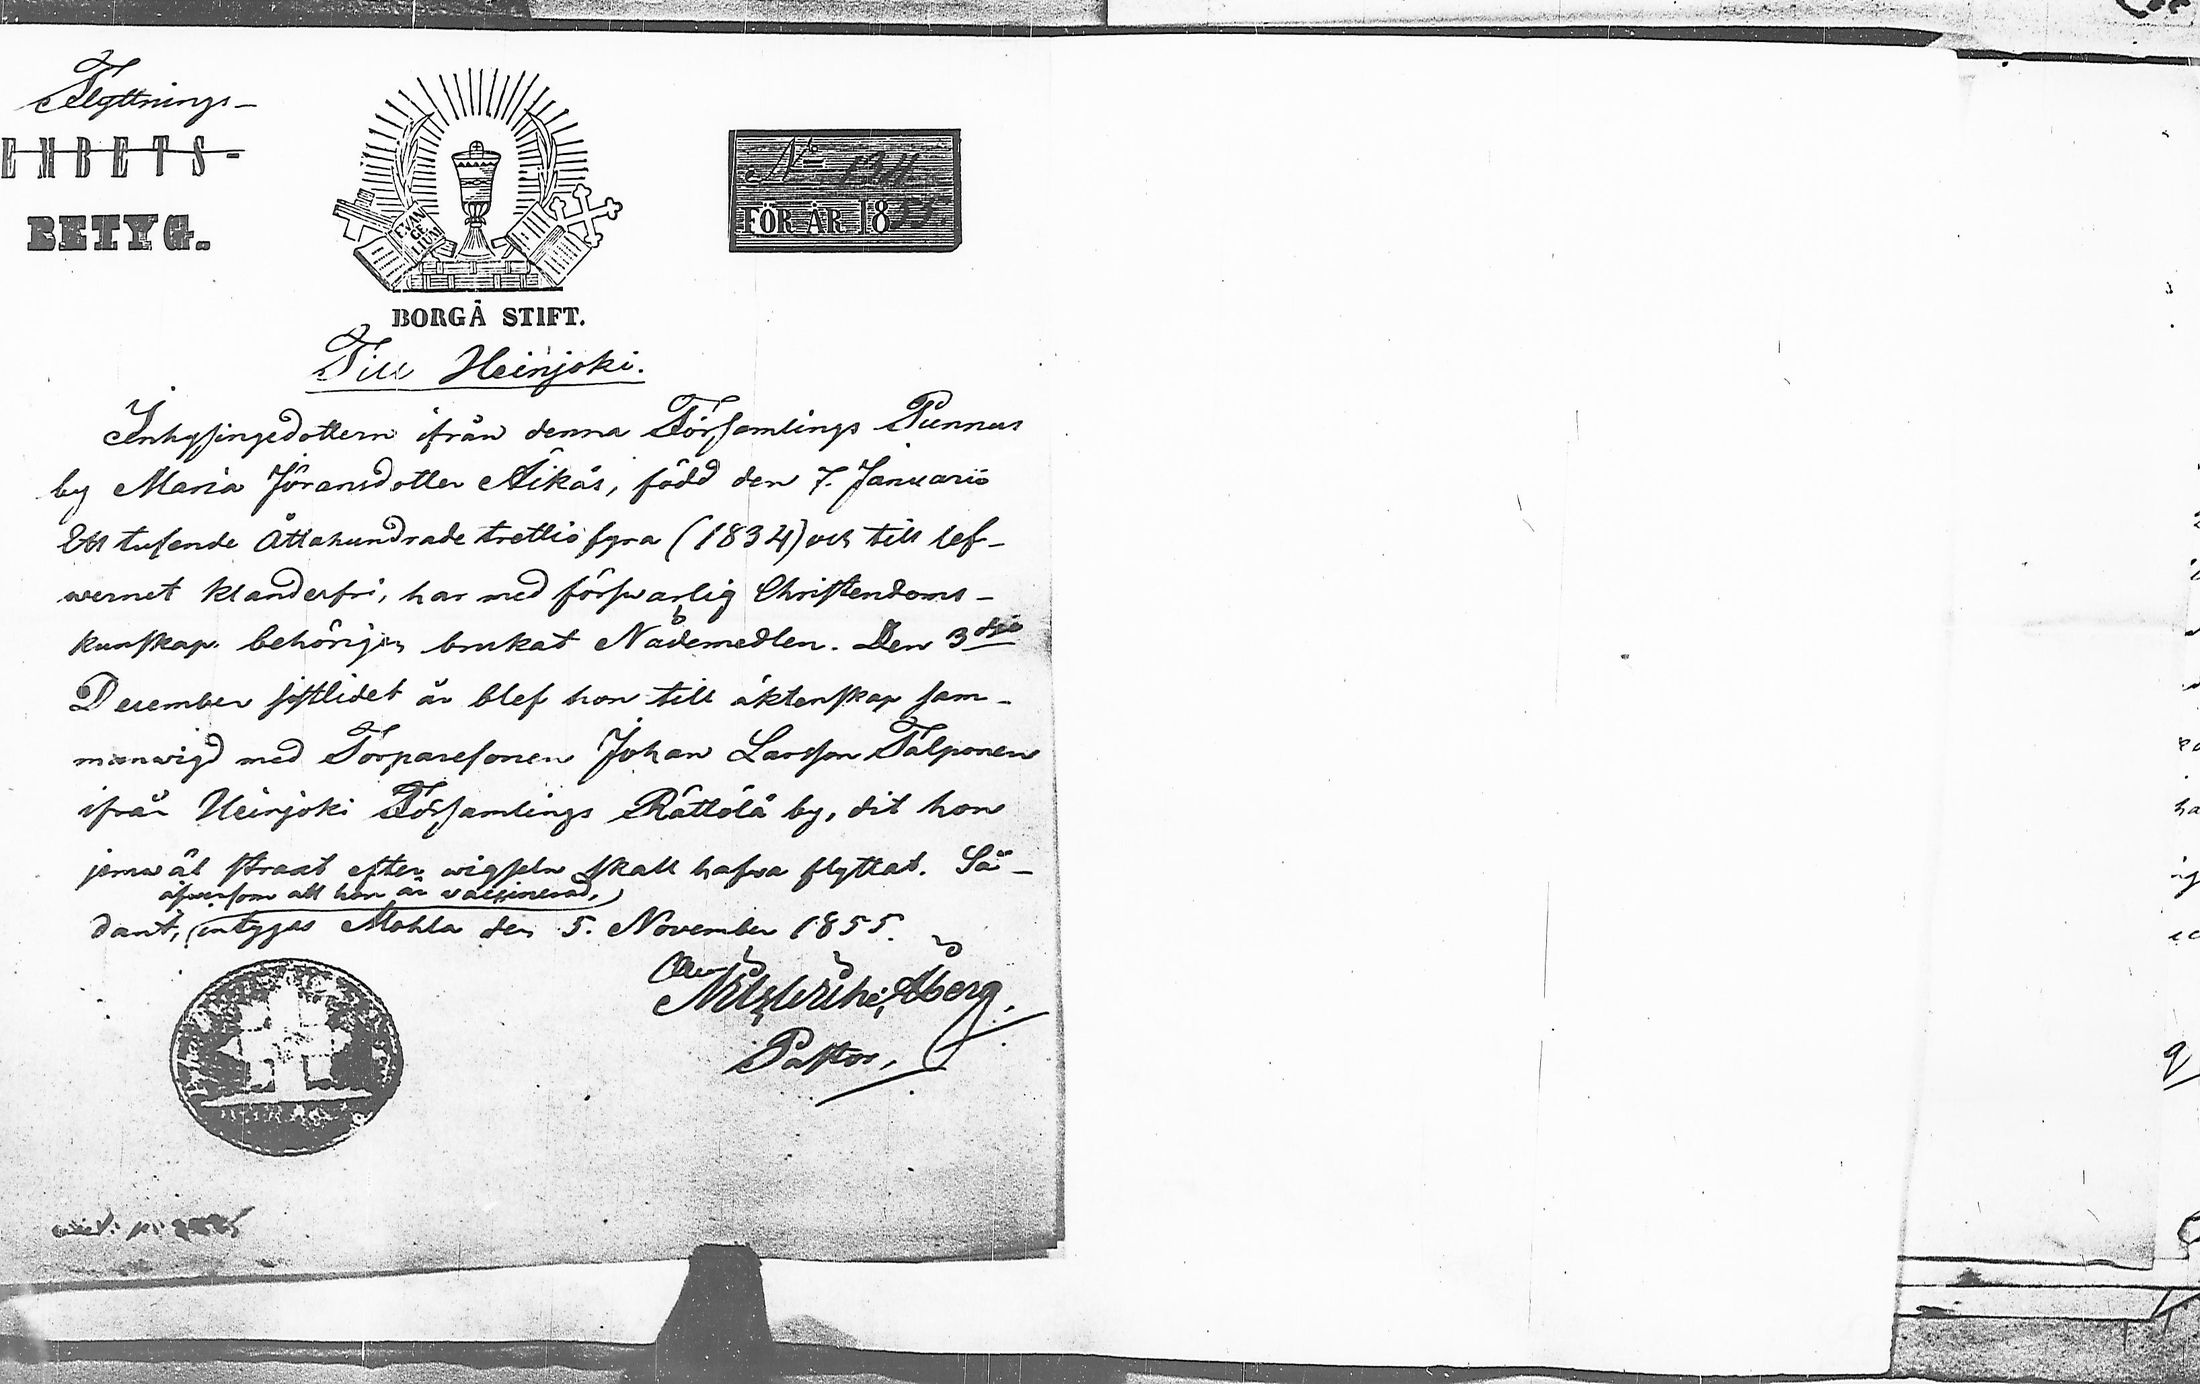 Flyttnings-
EMBETS-
BETYG.
EVANGELIUM
BORGÅ STIFT.
No 134
FÖR ÅR 1855.
Till Heinjoki.
Inhysingedottern ifrån denna Församlings Punnus
by Maria Jöransdotter Äikäs, född den 7. Januarii
Ett tusende Åttahundrade trettio fyra (1834) och till lef-
wernet klanderfri, har med förswarlig Christendoms-
kunskap behörigen brukat Nådemedlen. Den 3dje
December sistlidet år blef hon till äktenskap sam-
manwigd med Torparesonen Johan Larsson Talponen
ifrån Heinjoki Församlings Rättölä by, dit hon
jemwäl straxt efter wigseln skall hafwa flyttat. Så-
äfwensom att hon är vaccinerad,
dant, intygas Mohla den 5. November 1855.
Åberg.
Pastor,